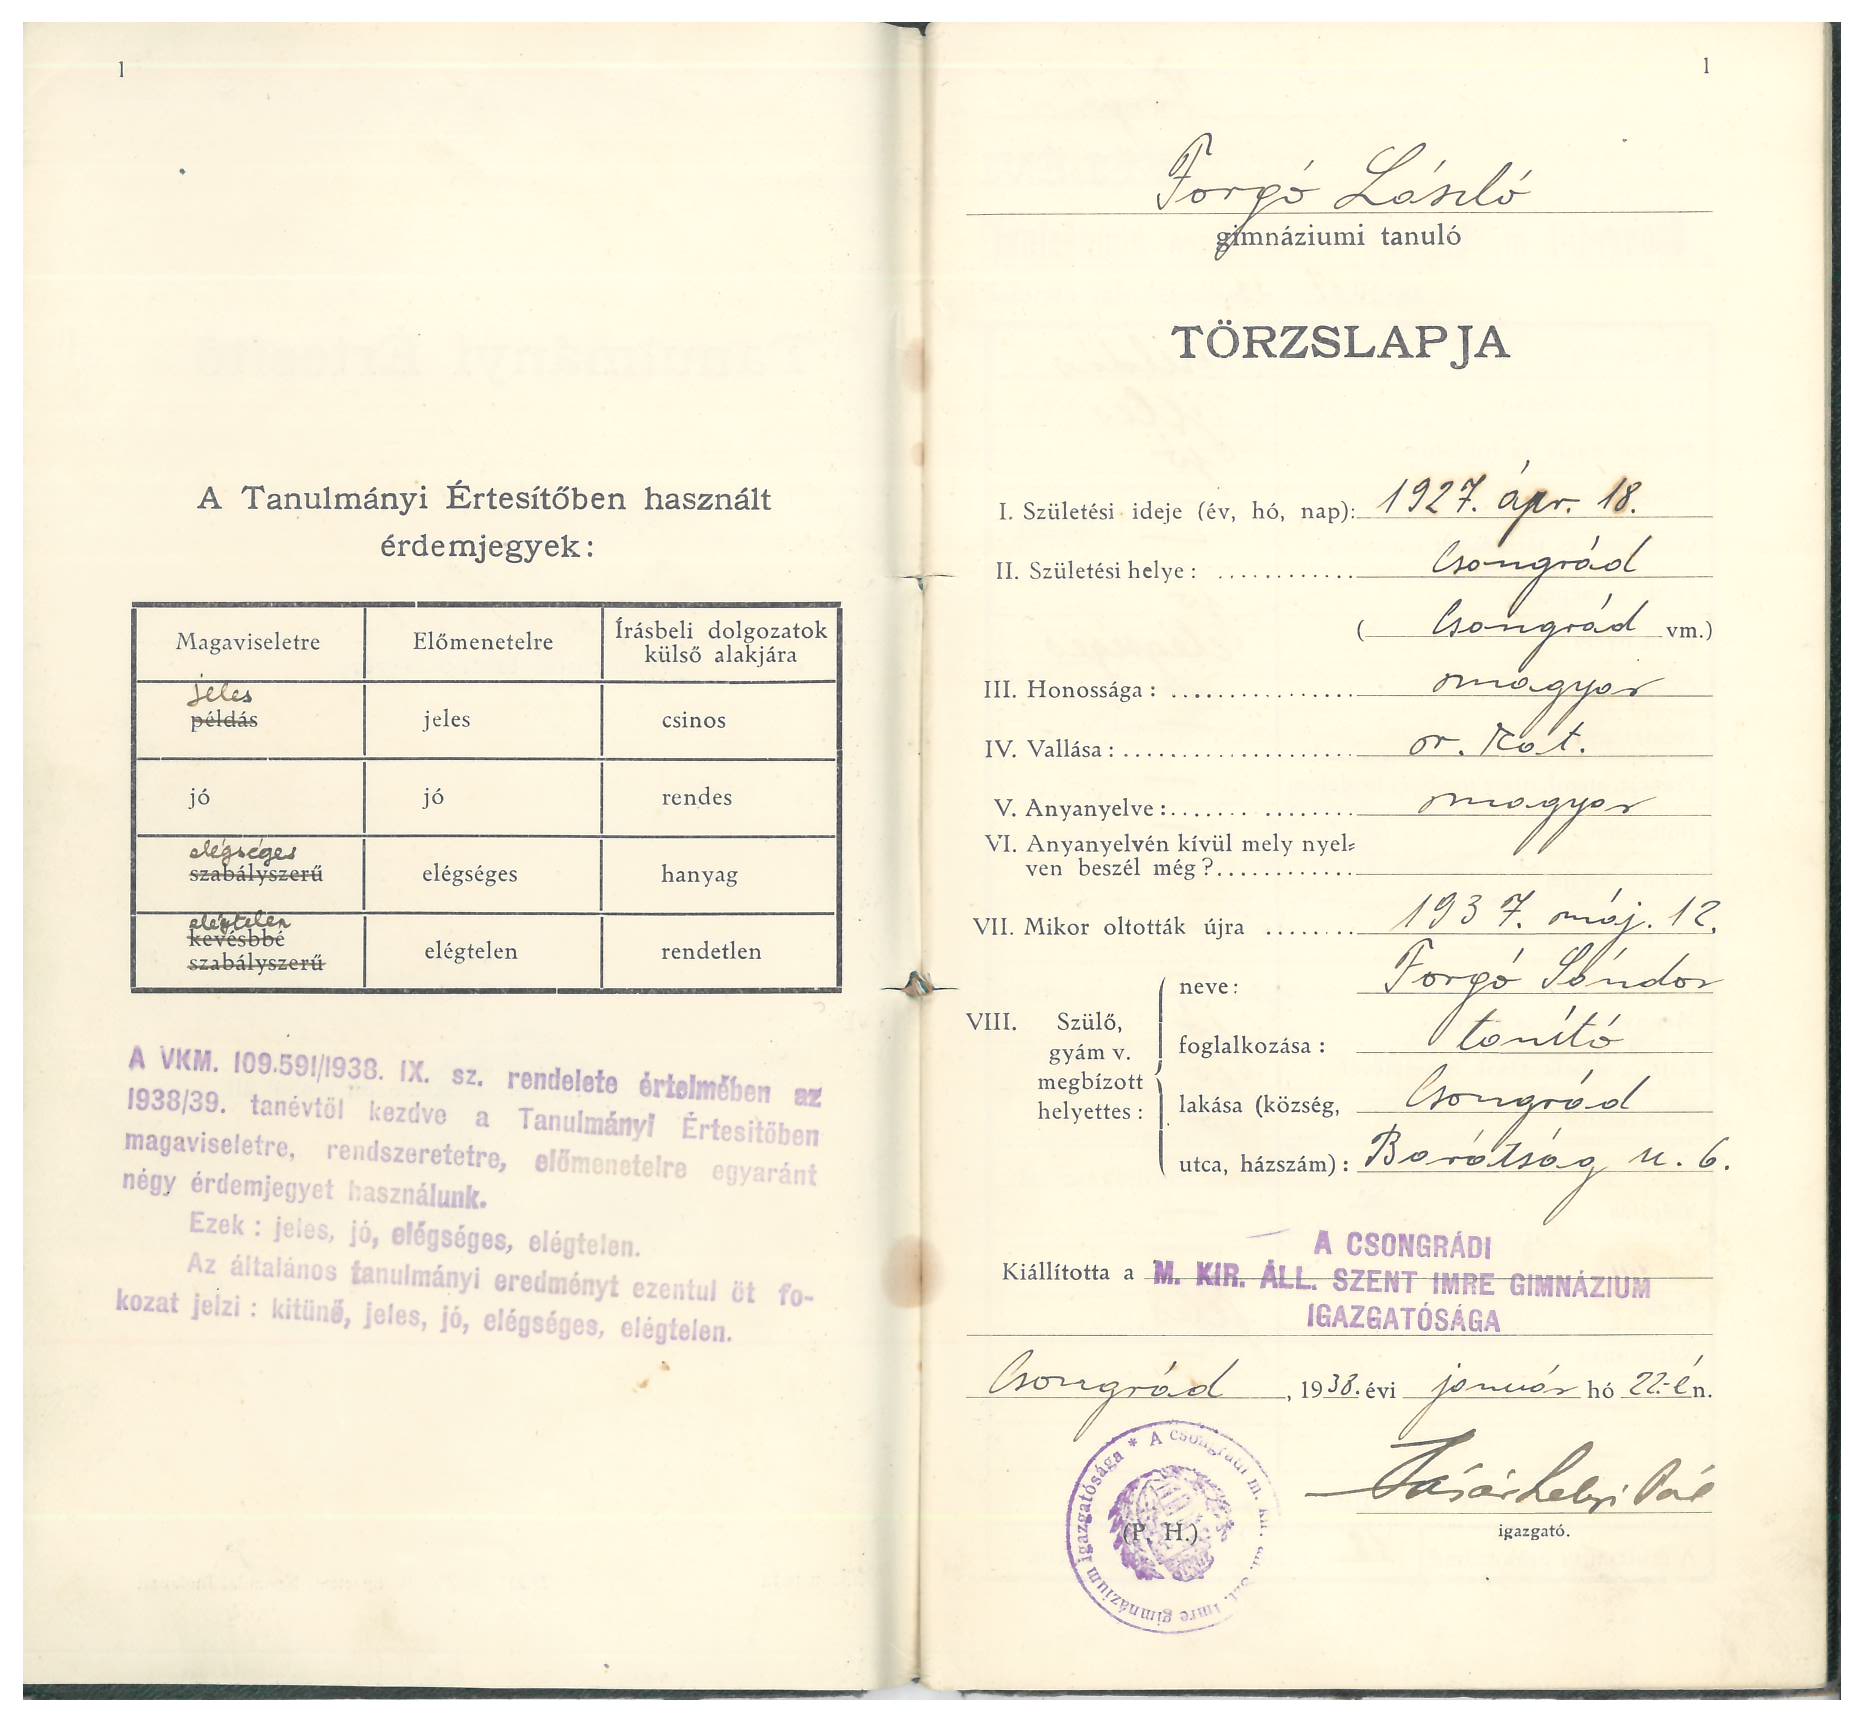 1
A Tanulmányi Értesítőben használt
érdemjegyek:
Magaviseletre Előmenetelre Írásbeli dolgozatok
külső alakjára
jeles
példás jeles csinos
jó jó rendes
elégséges
szabályszerű elégséges hanyag
elégtelen
kevésbbé
szabályszerű elégtelen rendetlen
A VKM. 109.591/1938. IX. sz. rendelete értelmében az
1938/39. tanévtöl kezdve a Tanulmányi Értesitöben
magaviseletre, rendszeretetre, előmenetelre egyaránt
négy érdemjegyet használunk.
Ezek : jeles, jó, elégséges, elégtelen.
Az általános tanulmányi eredményt ezentul öt fo-
kozat jelzi : kitünő, jeles, jó, elégséges, elégtelen.
1
Forgó László
gimnáziumi tanuló
TÖRZSLAPJA
I. Születési ideje (év, hó, nap): 1927. ápr. 18.
II. Születési helye : ............ Csongrád
( Csongrád vm.)
III. Honossága : ................ magyar
IV. Vallása : .................... r. kat.
V. Anyanyelve : ....... ........ magyar
VI. Anyanyelvén kívül mely nyel=
ven beszél még ? ............
VII. Mikor oltották újra ........ 1937. máj. 12.
neve : Forgó Sándor
VIII. Szülő,
gyám v. foglalkozása : tanító
megbízott
helyettes : lakása (község, Csongrád
utca, házszám) : Barátság u. 6.
A CSONGRÁDI
Kiállította a M. KIR. ÁLL. SZENT IMRE GIMNÁZIUM
IGAZGATÓSÁGA
Csongrád, 1938. évi január hó 22.-én.
* A csongrádi m. kir. áll. Szt. Imre gimnázium igazgatósága
(P. H.)
Vásárhelyi Pál
igazgató.